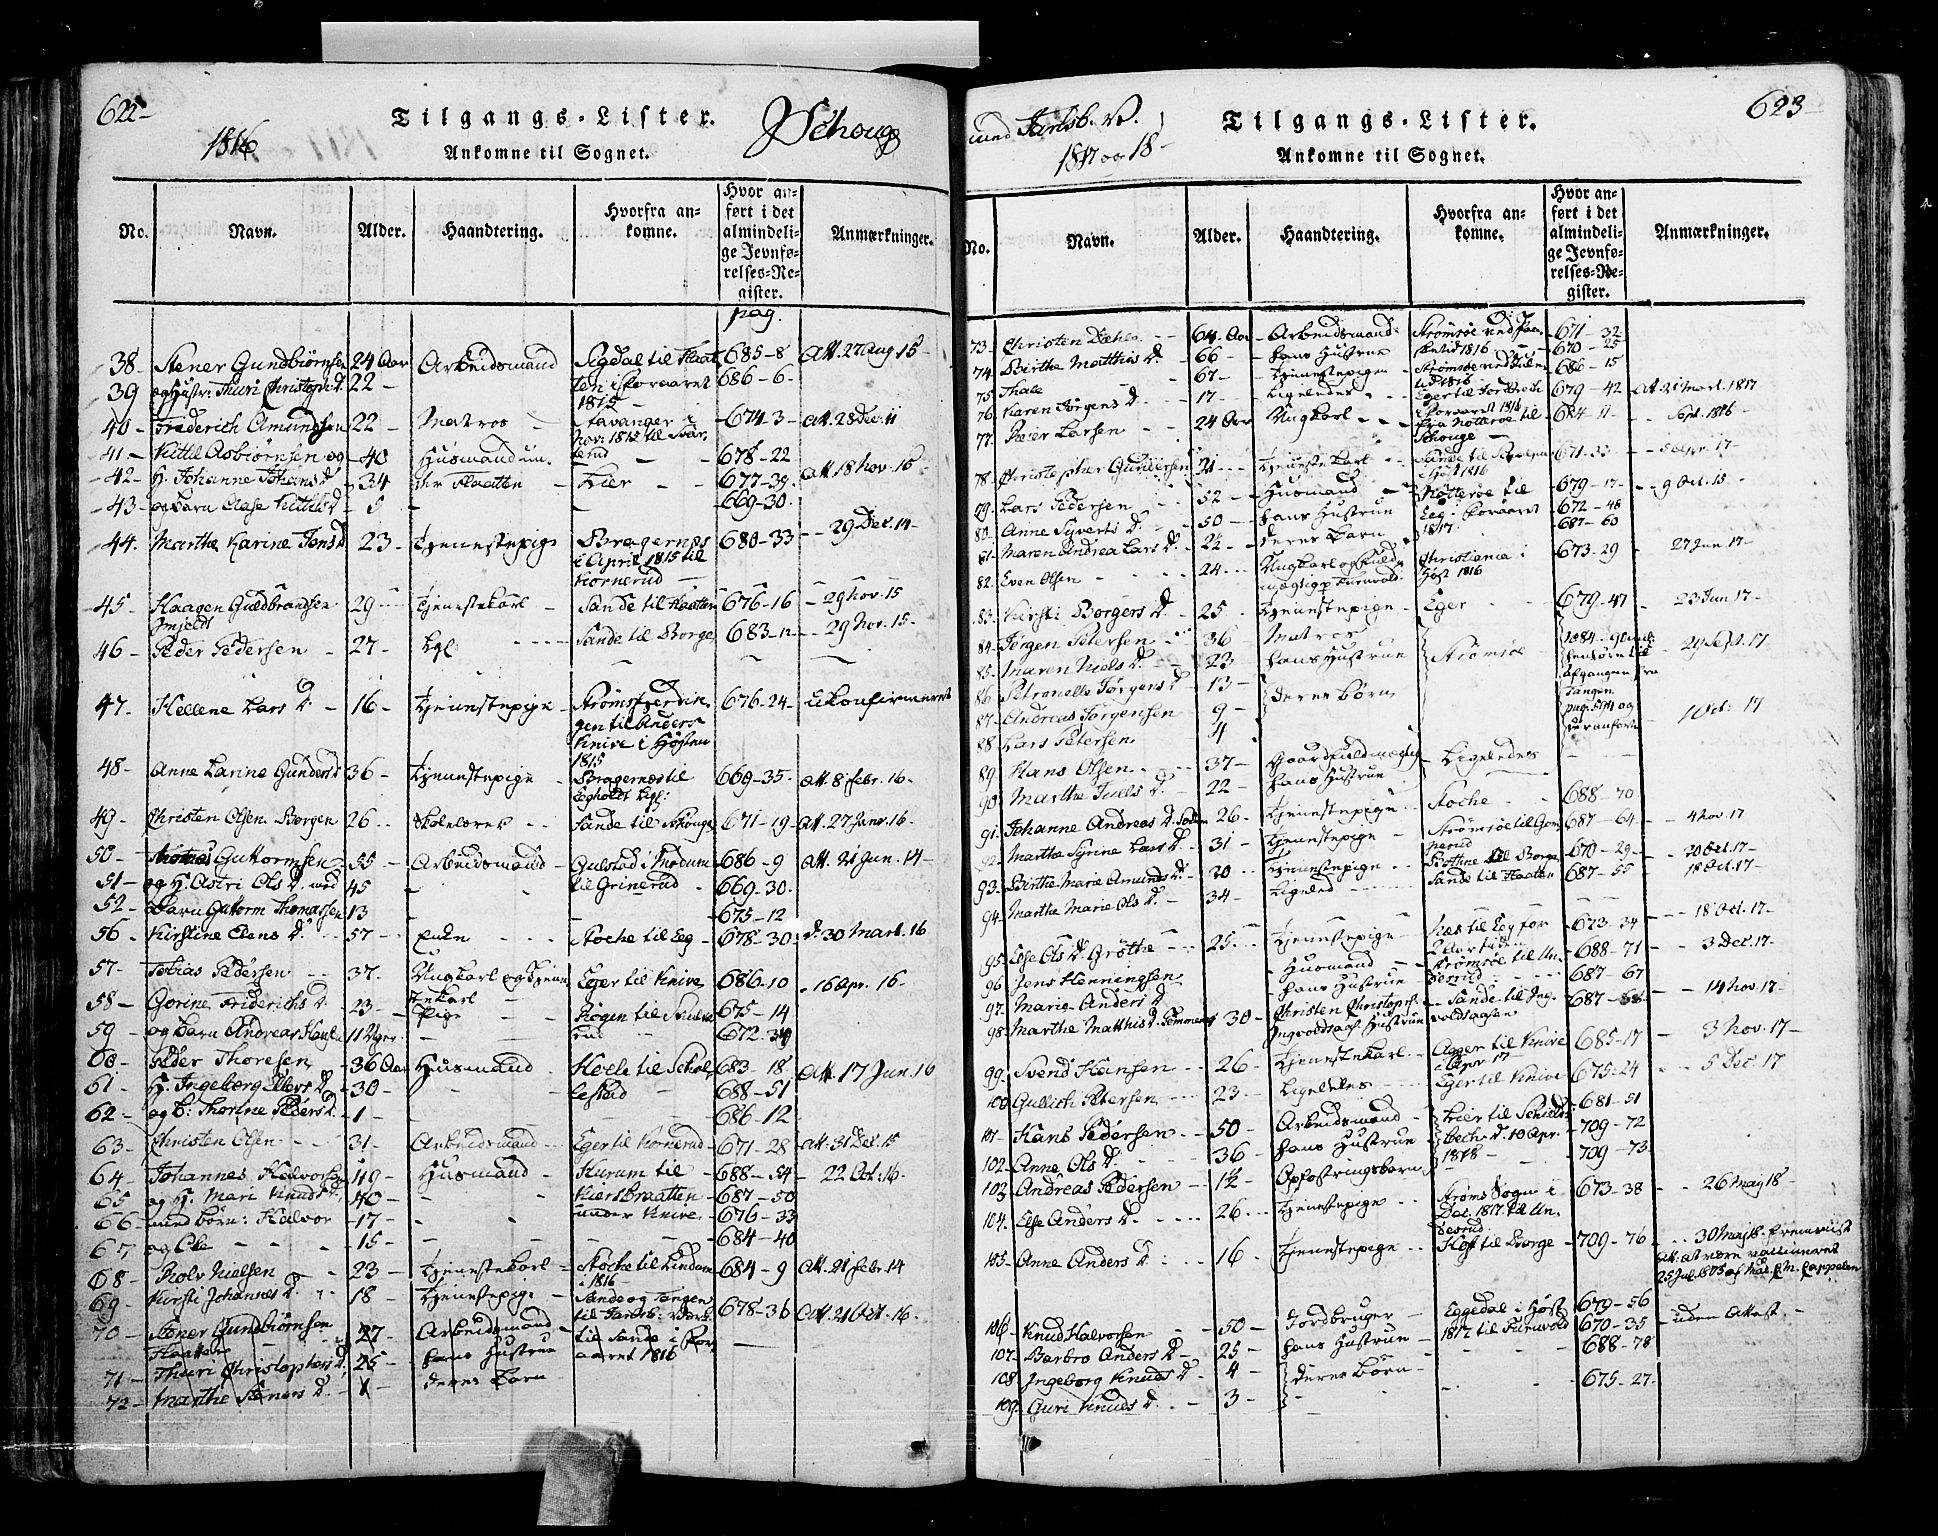 622
Tilgangs-Lister.
Schoug
1816
Ankomne til Sognet.
No. Navn. Alder. Haandtering. Hvorfra ankomne. Hvor anført i det almindelige Jevnførelses-Register. Anmærkninger.
pag.
38 Stener Gundbiørnsen 24 Aar Arbeidsmand Sigdal til Flaat 685-8 Att. 27 Aug 15
39 og Hustr: Thuri Christophd. 22 ten i Foraaret 686-6
1815
40 Friderich Amundsen 22 Matros Stavanger i 674-3 Att. 28 Dec. 11
Nov: 1815 til Svar
terud
41 Kittil Asbiørnsen og 40 Huusmand un 678-22
42 H. Johanne Johansd. 34 der Flaatten Lier 677-39 Att 18 Nov. 16
43 og Barn Aase Kittilsd. 5 669-30
44 Marthe Karine Jensd. 23 Tjenestepige Bragernæs 680-33 29 Dec. 14
i April 1815 til
Kornerud
45 Haagen Guldbrandsen 29 Tjenestekarl Sande til Flaatten 676-16 29 Nov. 15
46 Peder Pedersen 27 Lgl. Sande til Borge 683-12 29 Nov. 15
47 Hellene Lars D. 16 Tjenestepige 676-24 Ukonfirmeret
gen til Anders
Knive i Høsten
1815
48 Anne Larine Gundersd. 36 Tjenestepige Bragernæs til 669-35 Att 8 Febr. 16
Eegholdt Lgl:
49 Christen Olsen Borgen 26 Skolelærer Sande til Schouge 671-19 Att. 27 Janr. 16
50 Thomas Guttormsen 55 Arbeidsmand Gulstad i Modum 686-9 Att. 21 Jun. 14
51 og H. Astri Ols D. med 45 til Grinerud 669-30
52 Barn Guttorm Thomassen 13 675-12
56 Kirstine Clens D. 57 Enke Stoche til Eeg 678-30 d. 30 Mart. 16
57 Tobias Pedersen 37 Ungkarl og Tjene Eger til Knive 686-10 16 Apr. 16
stekarl
58 Gorine Friderichs D. 23 Pige 675-14
59 og Barn Andreas Hans 11 Uger 672-34
60 Peder Thoresen 36 Aar Huusmand 683-18 Att 17 Jun. 16
61 H. Ingeborg Peters D. 30 688-51
62 og B: Thorine Pedersd. 1 686-12
63 Christen Olsen 31 Arbeidsmand Eger til Kornerud 671-28 Att: 31 Dec. 15
64 Johannes Halvorsen 49 Huusmand Hurum til 688-54 22 Oct: 16
65 og H. Mari Knuds D. 40 Kiersbraatten 687-50
66 med Børn: Halvor 17 under Knive 676-33
67 og Ole 15 684-40
68 Rolv Nielsen 23 Tjenestekarl Stoche til Lindum 684-9 Att. 21 Febr. 14
i 1816
69 Kirsti Johannes D. 18 Tjenestepige Sande og Tangen 678-36 Att. 21 Oct. 16
70 Stener Gundbiørnsen 27 Arbeidsmand
Flaatten hans Hustrue til Sande i For
71 Thuri Christophers D. 25 aaret 1816
72 Marthe Steners D. 1 deres Barn
623
med Jarlsb. V.
Tilgangs-Lister.
1817 og 18
Ankomne til Sognet.
No. Navn. Alder. Haandtering. Hvorfra ankomne. Hvor anført i det almindelige Jevnførelses-Register. Anmærkninger.
73 Christen Dæhle 64 Aar Arbeidsmand Strømsøe ved Paa 671-32
74 Birthe Matthis D. 66 hans Hustrue sketid 1816 670-25
75 Thale 67 Tjenestepige 686-15
76 Karen Jørgens D. 17 Ligeledes 679-42 Att 21 Mart. 1817
77 Peter Larsen 24 Aar Ungkarl fra Nøtterøe til 684-11 Sept. 1816
Schouge
78 Christopher Gundersen 21 Tjenestekarl 671-33 5 Apr. 17
Høst 1816
79 Lars Pedersen 52 Huusmand Nøtterøe til 679-17 9 Oct. 15
80 Anne Syverts D. 50 hans Hustrue Eeg i Foraaret 672-48
81 Maren Andrea Lars D. 22 deres Barn 1817 687-60
82 Even Olsen 24 Ungkarl og Fuld Christiania i 673-29 27 Jun 17
mægtig p. Furevold Høst 1816
83 Kirsti Borgers D. 25 Tjenestepige Eger 679-47 23 Jun 17
84 Jørgen Petersen 36 Matros
85 Maren Niels D. 23 hans Hustrue Strømsøe 29 Sept. 17
86 Petronelle Jørgens D. 13 deres Børn
87 Andreas Jørgensen 9
88 Lars Petersen 4 1 Oct: 17
89 Hans Olsen 37 Gaardfuldmægtig Ligeledes
90 Marthe Juels D. 22 hans Hustrue
91 Johanne Andreas D. 26 Tjenestepige Stoche 688-70
92 Marthe Syrine Lars D. 31 Tjenestepige 687-64 4 Nov 17
93 Birthe Marie Amunds D. 30 Tjenestepige Bothne til Borge 670-29 30 Oct. 17
94 Marthe Marie Ols D. 34 Ligeled Sande til Flaatten 687-55 18 Oct. 17
95 Else Ols D. Grøthe 25 Tjenestepige Næs til Eeg for 673-34 18 Oct. 17
2 Aar siden
96 Jens Henningsen Huusmand 688-71 3 Dec. 17
97 Marie Anders D. hans Hustrue 687-67
98 Marthe Matthis D. 30 Christen Christophs. Sande til Ing 687-68 14 Nov. 17
Ingvoldsaas. Hustrue voldsaasen
99 Svend Hansen 26 Tjenestekarl Agger til Knive 685-17 3 Nov. 17
i Apr 17
100 Gullich Petersen 23 Ligeledes Eger til Knive 675-24 5 Dec. 17
101 Hans Pedersen 50 Arbeidsmand 681-51
102 Anne Ols D. 36 hans Hustrue beche d. 10 Apr. 709-72
103 Andreas Pedersen 1½ Opfostringsbarn 1818 709-73
104 Else Anders D. 26 Tjenestepige Strøms Sogn i 673-38 26 May 18
Dec. 1817 til Un
desrud
105 Anne Anders D. 16 Tjenestepige Hof til Borge 709-76
106 Knud Halvorsen 50 Jordbruger Eggedal i Høst 679-56 uden Attest
107 Barbro Anders D. 25 hans Hustrue 1817 til Furevold 670-35
108 Ingeborg Knuds D. 4 deres Børn 688-78
109 Guri Knuds D. 3 675-27